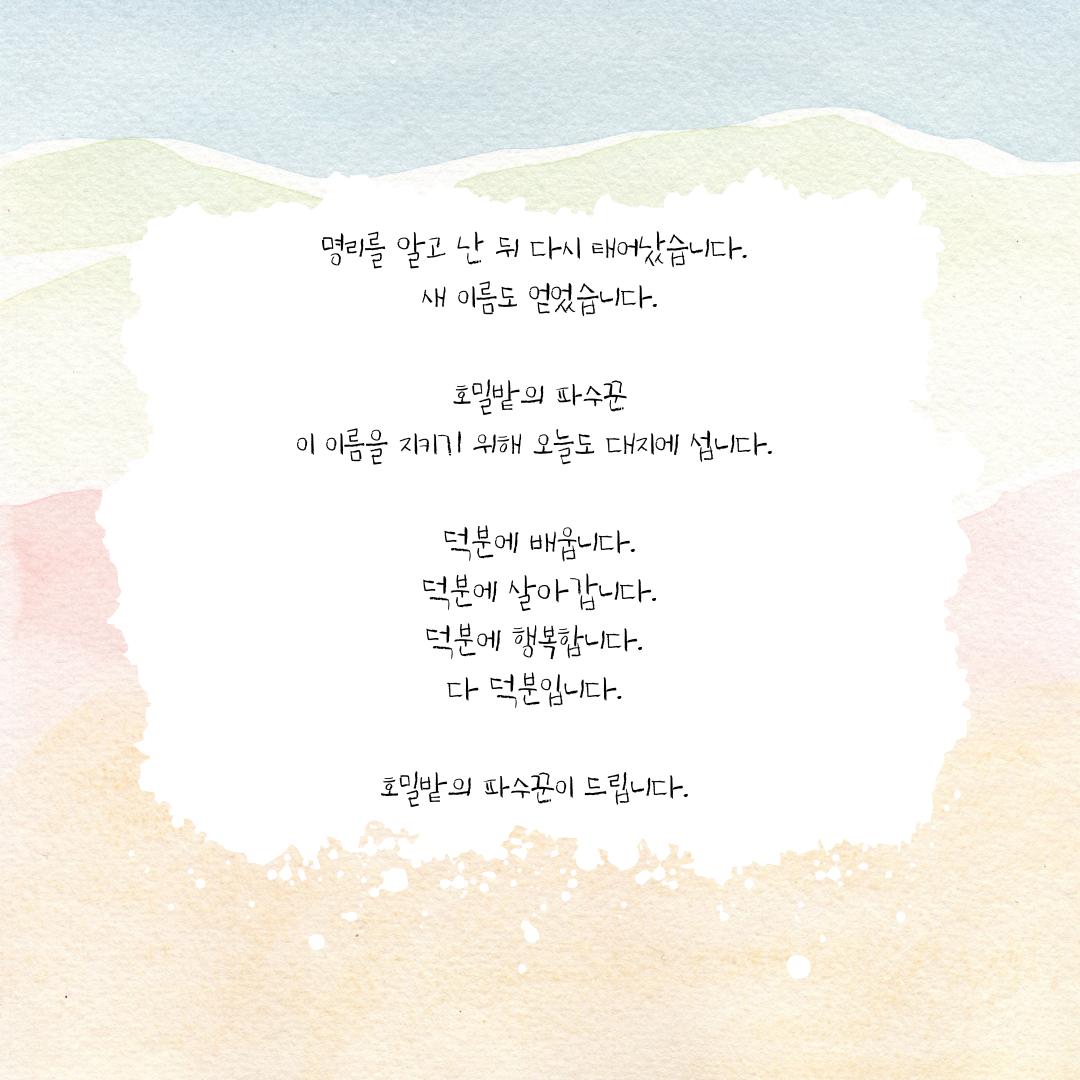 명리를 알고 난 뒤 다시 태어났습니다.
새 이름도 얻었습니다.
호밀밭의 파수꾼
이 이름을 지키기 위해 오늘도 대지에 섭니다.
덕분에 배웁니다.
덕분에 살아갑니다.
덕분에 행복합니다.
다 덕분입니다.
호밀밭의 파수꾼이 드립니다.